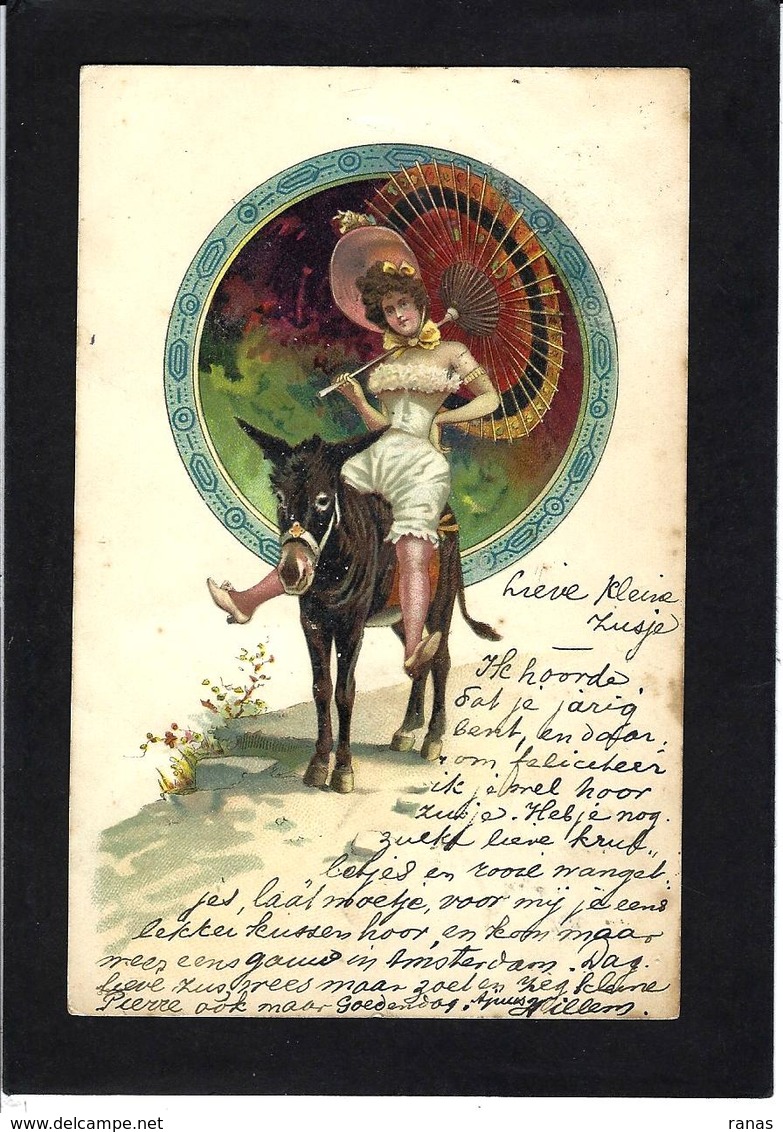 Lieve kleine
zusje
Ik hoorde
dat je jarig
bent, en daar
om feliciteer
ik je wel hoor
zusje. Heb je nog
zulke lieve krul„
letjes en rooie wanget
jes, laat moetje, voor mij je eens
lekker kussen hoor, en kom maar
weer eens gauw in Amsterdam. Dag
lieve zus, wees maar zoet en zeg kleine
Pierre ook maar Goedendag. Willem.
delcampe.net
ranas